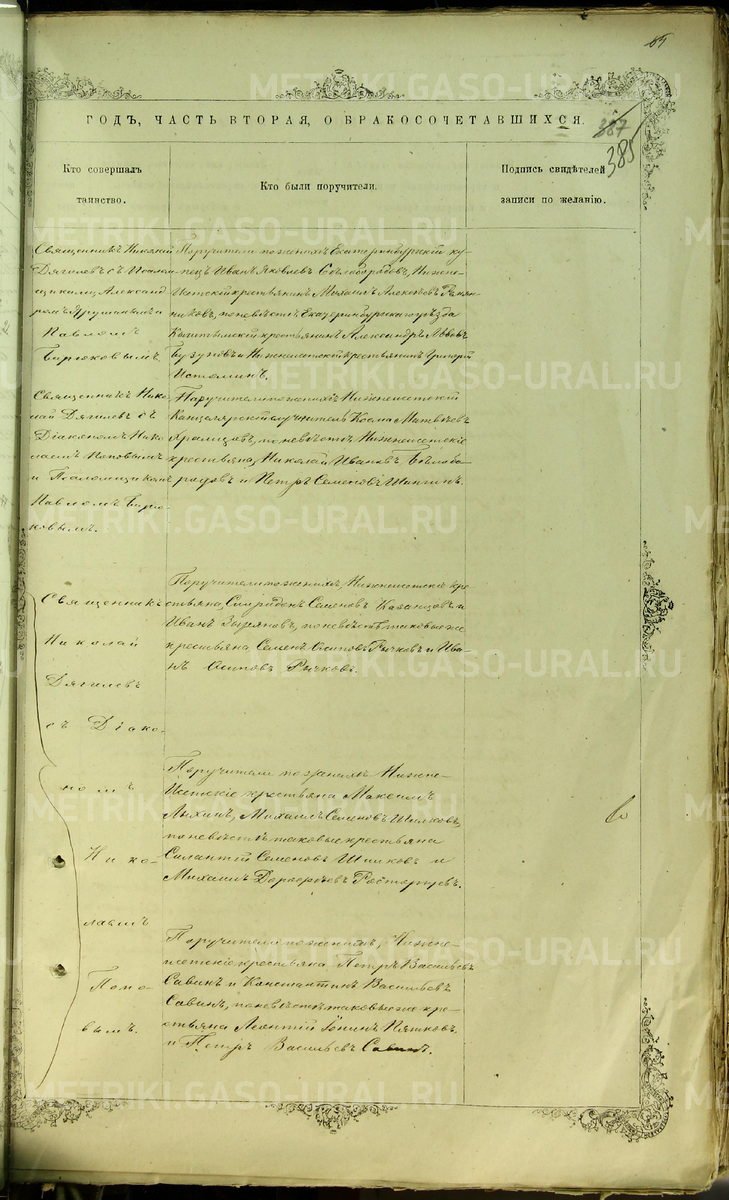 ГОДЪ, ЧАСТЬ ВТОРАЯ, О БРАКОСОЧЕТАВШИХСЯ.
387
385
Кто совершалъ
таинство.
Кто были поручители.
Подпись свидѣтелей
записи по желанію.
Священникъ Николай
Дягилевъ съ Псалом-
щиками Александ-
ромъ
Павломъ
Бирюковымъ.
Поручители по женихѣ Екатеринбургскій ку-
пецъ Иванъ Яковлевъ Бѣлобородовъ, Нижне-
Исетскій крестьянинъ Михаилъ Алексѣевъ
никовъ, по невѣстѣ Екатеринбургскаго уѣзда
крестьянинъ Александръ Львовъ
и Нижнеисетскій крестьянинъ Григорій
Истоминъ.
Священникъ Нико-
лай Дягилевъ съ
Діакономъ Нико-
лаемъ Поповымъ
и Псаломщикомъ
Павломъ Бирю-
ковымъ.
Поручители по женихѣ Нижнеисетскій
Канцелярскій служитель Косма Матвѣевъ
по невѣстѣ Нижнеисетскіе
крестьяна, Николай Ивановъ Бѣлобо-
родовъ и Петръ Семеновъ
Священникъ
Николай
Дягилевъ
съ Діако-
номъ
Нико-
лаемъ
Попо-
вымъ.
Поручители по женихѣ, Нижнеисетскіе кре-
стьяна, Спиридонъ Семеновъ Казанцевъ и
Иванъ по невѣстѣ таковые же
крестьяна Семенъ Осиповъ Рычковъ и Ива-
нъ Осиповъ Рычковъ.
Поручители по женихѣ Нижне-
Исетскіе крестьяна Максимъ
Михаилъ Семеновъ Шишковъ,
по невѣстѣ таковые крестьяна
Силантій Семеновъ Шишковъ и
Михаилъ
Поручители по женихѣ, Нижне-
исетскіе крестьяна Петръ Васильевъ
Савинъ и Константинъ Васильевъ
Савинъ, по невѣстѣ таковые же кре-
стьяна Леонтій
и Петръ Васильевъ Савинъ.
METRIKI.GASO-URAL.RU